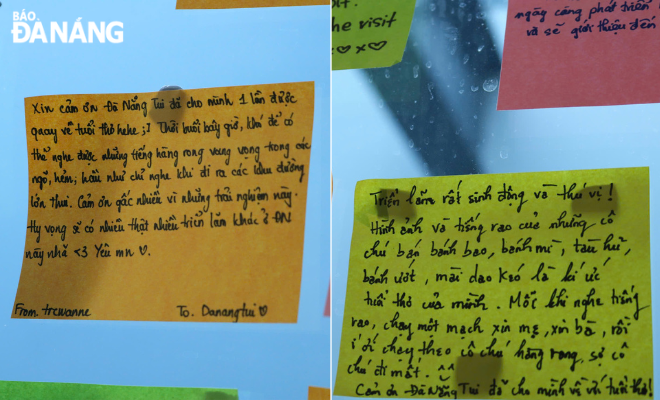 BÁO
ĐÀ NẴNG
Xin cảm ơn Đà Nẵng Tui đã cho mình 1 lần được
quay về tuổi thơ hehe ;] Thời buổi bây giờ, khó để có
thể nghe được những tiếng hàng rong vang vọng trong các
ngõ, hẻm; hầu như chỉ nghe khi đi ra các khu đường
lớn thui. Cảm ơn gấc nhiều vì những trải nghiệm này.
Hy vọng sẽ có nhiều thật nhiều triển lãm khác ở ĐN
này nhă <3 Yêu mn ♡.
From. trcwanne
To. Danangtui ♡
he visit
♡ x ♡
ngày càng phát triển
và sẽ giới thiệu đến
Triển lãm rất sinh động và thú vị !
Hình ảnh và tiếng rao của những cô
chú bán bánh bao, bánh mì, tàu hũ,
bánh ướt, mài dao kéo là kí ức
tuổi thơ của mình. Mỗi khi nghe tiếng
rao, chạy một mạch xin mẹ, xin bà, rồi
í ới chạy theo cô chú hàng rong, sợ cô
chú đi mất. ^^
Cảm ơn Đà Nẵng Tui đã cho mình về với tuổi thơ!